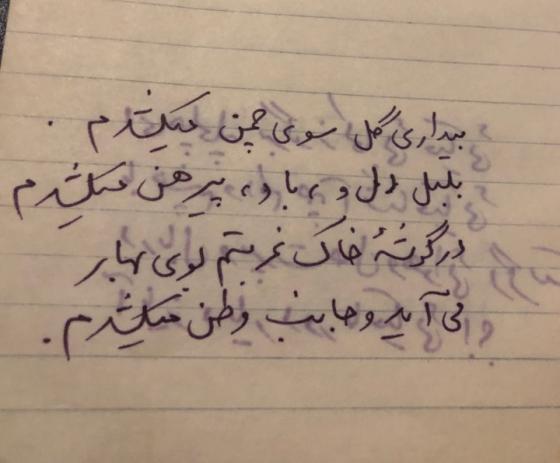 بیداری گل سوی چمن میکشدم .
بلبل دل و ، باد ، پیرهن میکشدم
در گوشهٔ خاک غربتم بوی بهار
می آید و جانب وطن میکشدم .